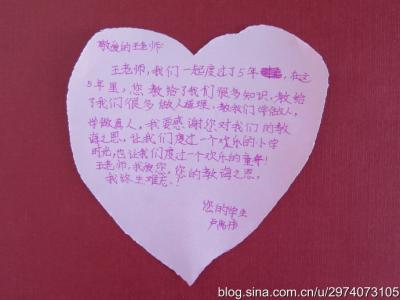 敬爱的王老师
王老师,我们一起度过了5年,在这
5年里,您教给了我们很多知识,教给
了我们很多做人道理,教我们学做人,
学做真人,我要感谢您对我们的教
诲之恩,让我们度过一个欢乐的小学
时光,也让我们度过一个欢乐的童年!
王老师,我爱您,您的教诲之恩,
我终生难忘!
您的学生
卢
blog.sina.com.cn/u/2974073105